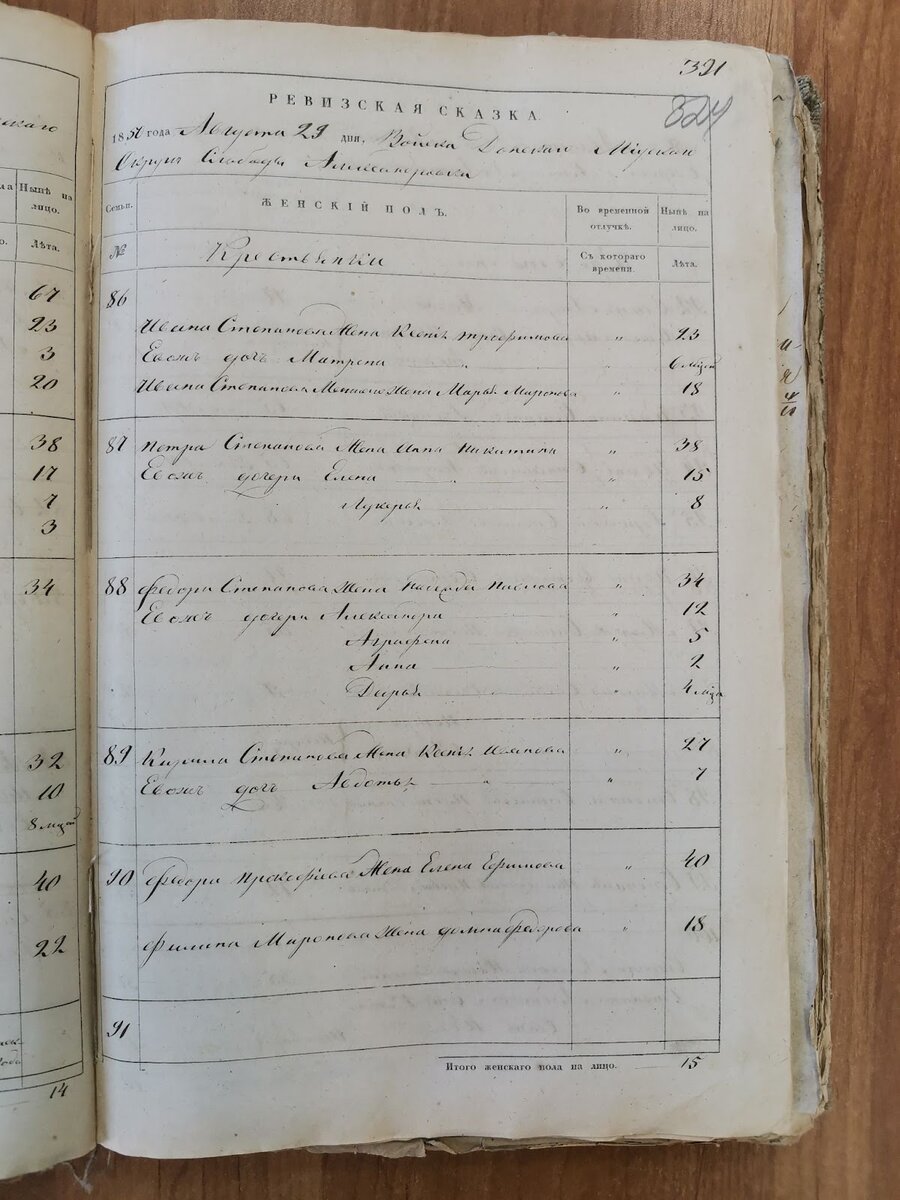 321
324
РЕВИЗСКАЯ СКАЗКА
1850 года Августа 29 дня, Войска Донскаго Міускаго
Округа Слободы Александровки
Семьи. ЖЕНСКІЙ ПОЛЪ. Во временной отлучкѣ. Нынѣ на лицо.
№ Крестьянки Съ котораго времени. Лѣта.
86
Ивана Степанова Жена Ксенія Трофимова " 23
Евожъ дочь Матрена " 6 мцов
Ивана Степанова Жена Марья Миронова " 18
87 Петра Степанова Жена Анна Никитина " 38
Евожъ дочери Елена " 15
Лукерья " 8
88 Федора Степанова Жена Надежда Павлова " 34
Евожъ дочери Александра " 12
Аграфена " 5
Анна " 2
Дарья " 4 мцов
89 Кирила Степанова Жена Ксенія Иванова " 27
Евожъ дочь Авдотья " 7
90 Федора Прокофьева Жена Елена Ефимова " 40
Филипа Миронова Жена Домна Федорова " 18
91
Итого женскаго пола на лицо. 15
скаго
Нынѣ на лицо.
Лѣта.
67
23
3
20
38
17
7
3
34
32
10
8 мцов
40
22
14